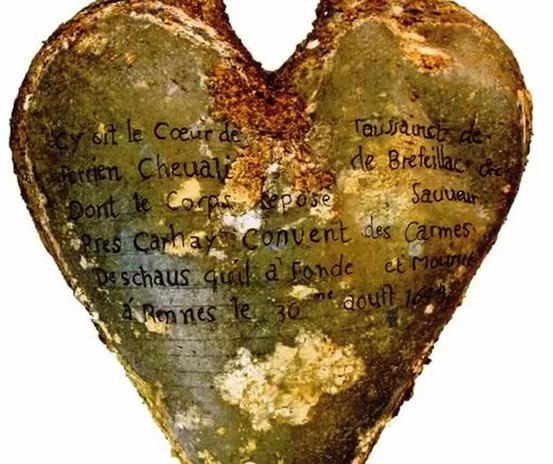 Cy Git le Cœur de Toussainct de
Perrien Cheuali de Brefeillac &c
Dont le Corps Repose Sauueur
Pres Carhay Convent des Carmes
Deschaus quil a Fonde et Mourut
á Rennes le 30me aoust